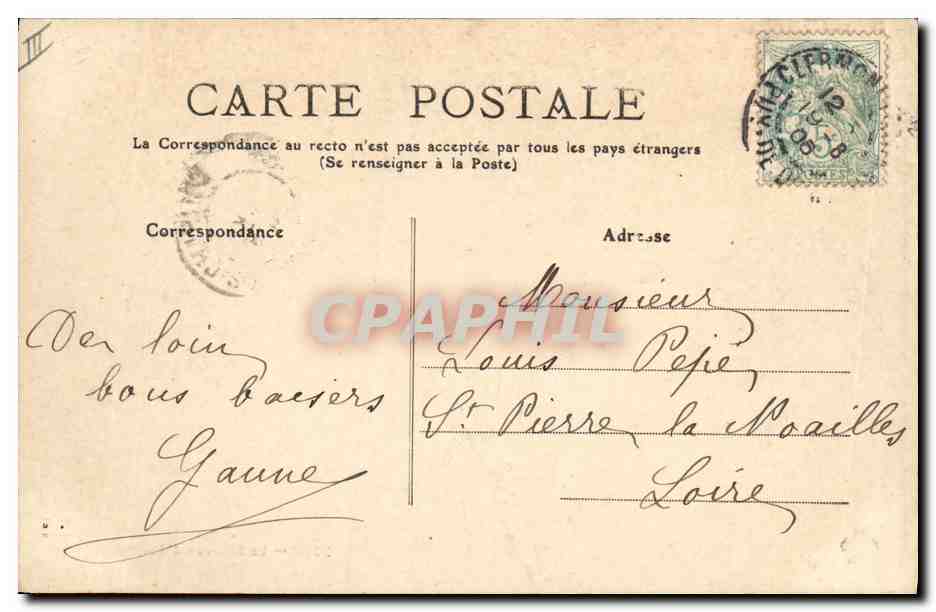 III
CARTE POSTALE
La Correspondance au recto n'est pas acceptée par tous les pays étrangers
(Se renseigner à la Poste)
CLERMON
PUY-DE-D
12
19-8
05
5
Correspondance
Adresse
CPAPHIL
Monsieur
Louis Pepè
St Pierre la Noailles
Loire
De loin
bons baisers